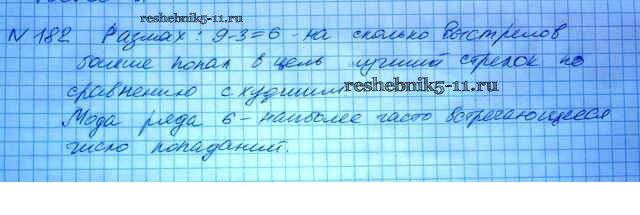 reshebnik5-11.ru
N 182 Размах: 9-3=6 - на сколько выстрелов
больше попал в цель лучший стрелок по
сравнению с худшим reshebnik5-11.ru
Мода ряда 6 - наиболее часто встречающееся
число попаданий.